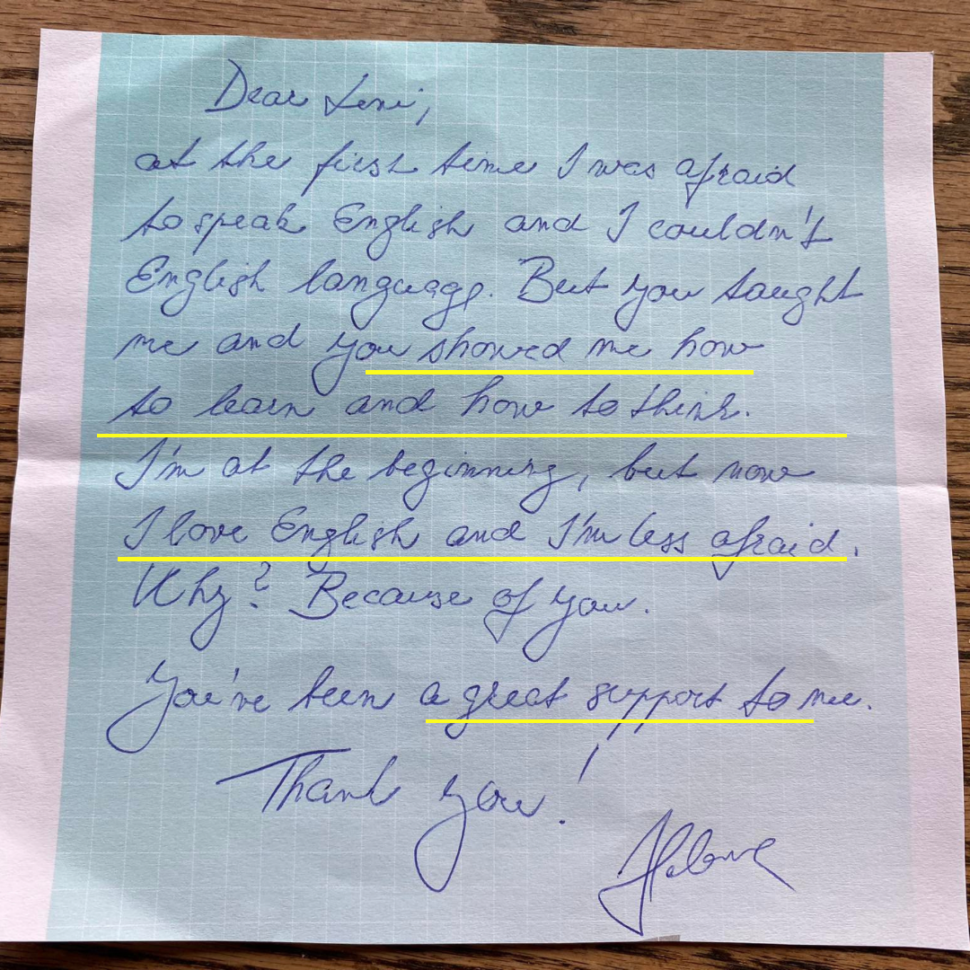 Dear Leni,
at the first time I was afraid
to speak English and I couldn't
English language. But you taught
me and you showed me how
to learn and how to think.
I'm at the beginning, but now
I love English and I'm less afraid.
Why? Because of you.
You've been a great support to me.
Thank you!